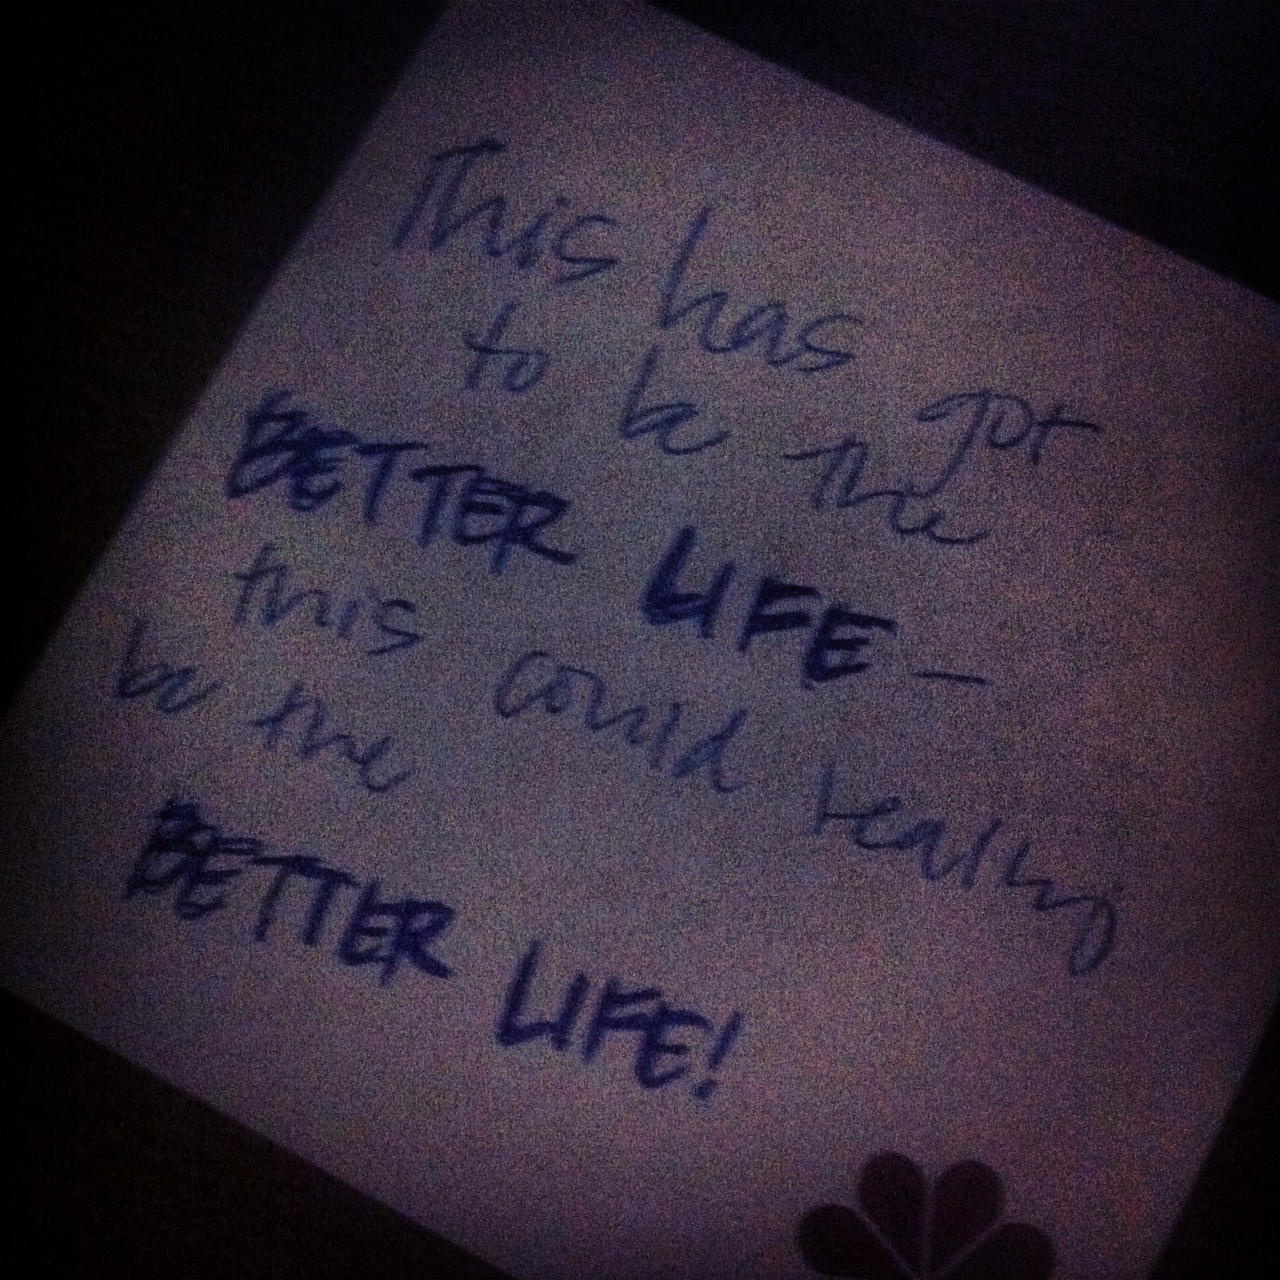 This has got
to be the
BETTER LIFE —
this could really
be the
BETTER LIFE!